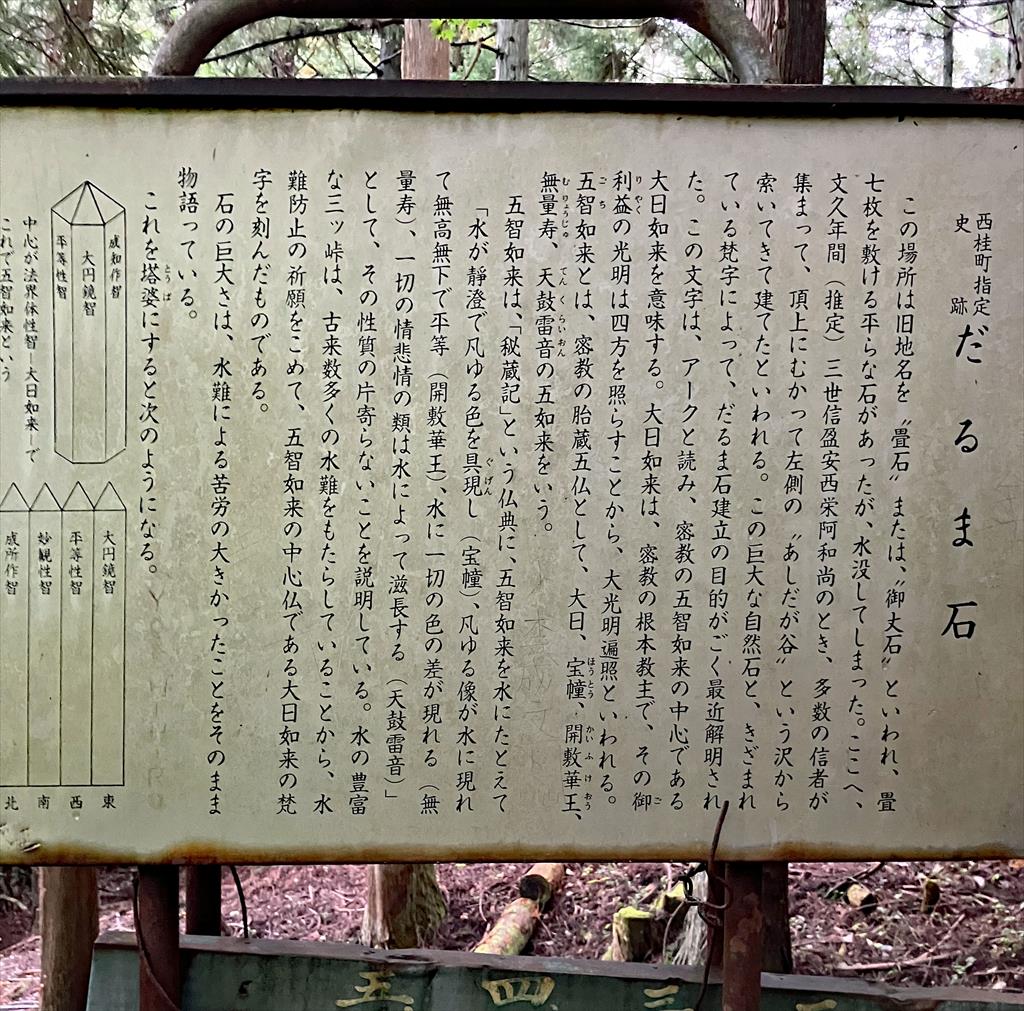 西桂町指定
史跡
だるま石
この場所は旧地名を〝畳石〟または、〝御丈石〟といわれ、畳
七枚を敷ける平らな石があったが、水没してしまった。ここへ、
文久年間（推定）三世信盈安西栄阿和尚のとき、多数の信者が
集まって、頂上にむかって左側の〝あしだが谷〟という沢から
索いてきて建てたといわれる。この巨大な自然石と、きざまれ
ている梵字によって、だるま石建立の目的がごく最近解明され
た。この文字は、アークと読み、密教の五智如来の中心である
大日如来を意味する。大日如来は、密教の根本教主で、その御
利益の光明は四方を照らすことから、大光明遍照といわれる。
五智如来とは、密教の胎蔵五仏として、大日、宝幢、開敷華王、
無量寿、天鼓雷音の五如来をいう。
五智如来は、「秘蔵記」という仏典に、五智如来を水にたとえて
「水が靜澄で凡ゆる色を具現し（宝幢）、凡ゆる像が水に現れ
て無高無下で平等（開敷華王）、水に一切の色の差が現れる（無
量寿）、一切の情悲情の類は水によって滋長する（天鼓雷音）」
として、その性質の片寄らないことを説明している。水の豊富
な三ッ峠は、古来数多くの水難をもたらしていることから、水
難防止の祈願をこめて、五智如来の中心仏である大日如来の梵
字を刻んだものである。
石の巨大さは、水難による苦労の大きかったことをそのまま
物語っている。
これを塔婆にすると次のようになる。
成知作智
大円鏡智
平等性智
中心が法界体性智ー大日如来ーで
これで五智如来という
大円鏡智
平等性智
妙観性智
成所作智
東
西
南
北
五 四 三 一